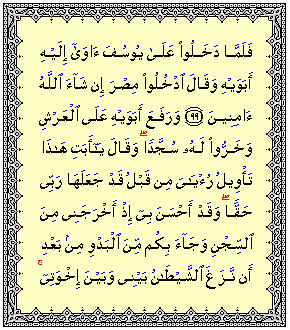 فَلَمَّا دَخَلُوا۟ عَلَىٰ يُوسُفَ ءَاوَىٰٓ إِلَيْهِ
أَبَوَيْهِ وَقَالَ ٱدْخُلُوا۟ مِصْرَ إِن شَآءَ ٱللَّهُ
ءَامِنِينَ ﴿٩٩﴾ وَرَفَعَ أَبَوَيْهِ عَلَى ٱلْعَرْشِ
وَخَرُّوا۟ لَهُۥ سُجَّدًۭا ۖ وَقَالَ يَـٰٓأَبَتِ هَـٰذَا
تَأْوِيلُ رُءْيَـٰىَ مِن قَبْلُ قَدْ جَعَلَهَا رَبِّى
حَقًّۭا ۖ وَقَدْ أَحْسَنَ بِىٓ إِذْ أَخْرَجَنِى مِنَ
ٱلسِّجْنِ وَجَآءَ بِكُم مِّنَ ٱلْبَدْوِ مِنۢ بَعْدِ
أَن نَّزَغَ ٱلشَّيْطَـٰنُ بَيْنِى وَبَيْنَ إِخْوَتِىٓ ۚ